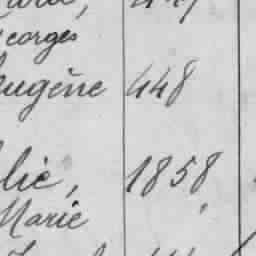 eorges
ugène 448
lie, 1858
Marie